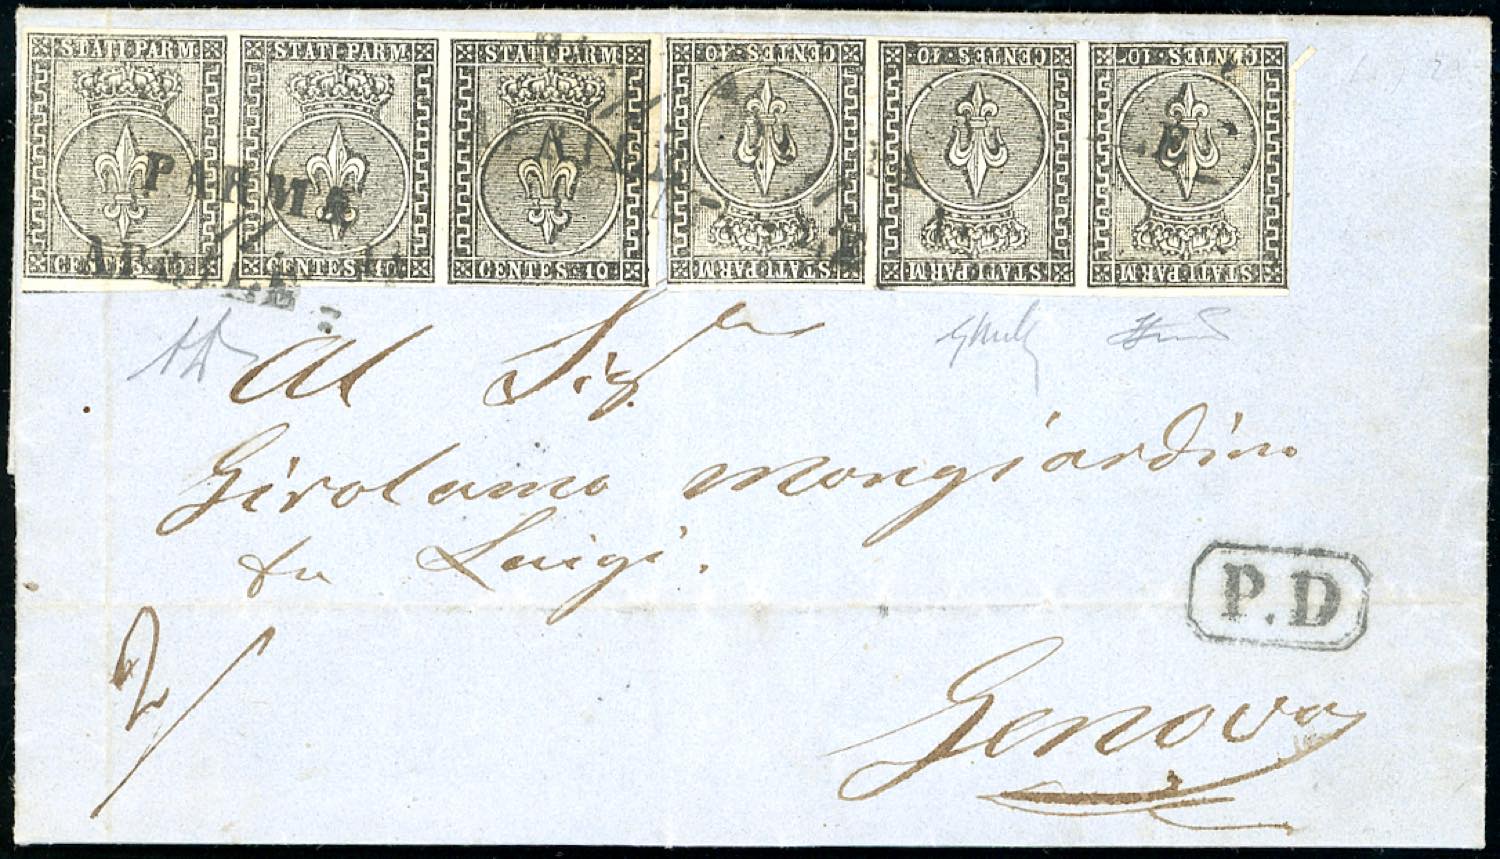 STATI PARM STATI PARM STATI PARM CENTES. 10 CENTES. 10 CENTES. 10
CENTES. 10 CENTES. 10 CENTES. 10 STATI PARM STATI PARM STATI PARM
PARMA
APRILE
Al Sigr
Girolamo Mongiardino
fu Luigi.
P.D
2/
Genova